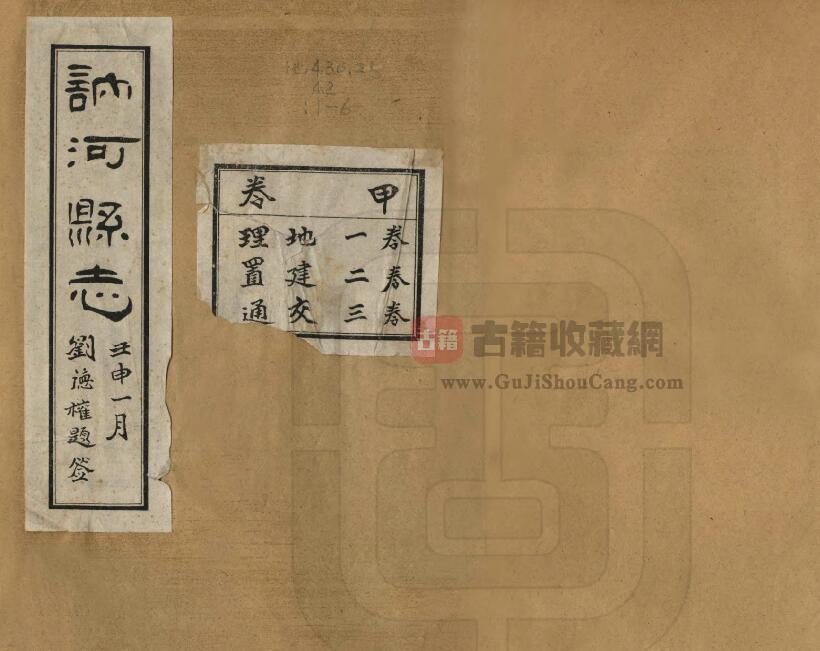 訥河縣志
壬申一月
劉德權題簽
甲卷
卷一 地理
卷二 建置
卷三 交通
地430.25
42
11-6
古籍
古籍收藏網
www.GuJiShouCang.com